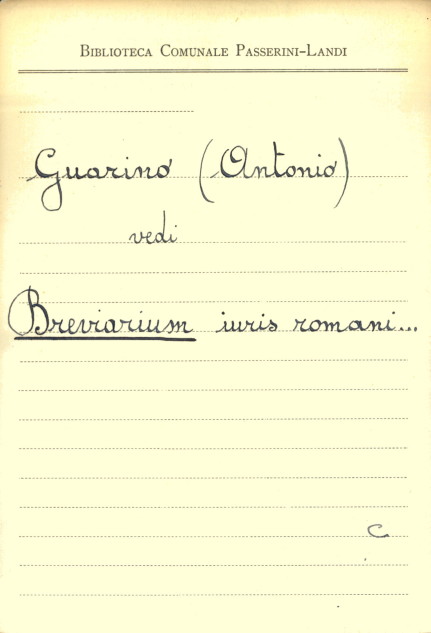 BIBLIOTECA COMUNALE PASSERINI-LANDI
Guarino (Antonio)
vedi
Breviarium iuris romani...
C